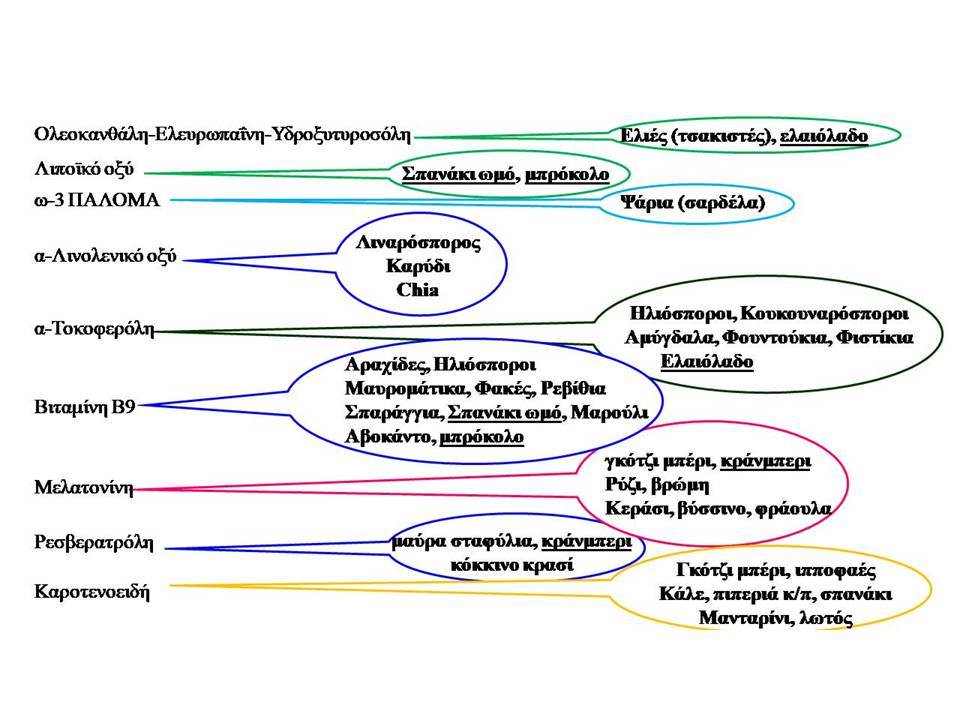 Ολεοκανθάλη-Ελευρωπαΐνη-Υδροξυτυροσόλη
Ελιές (τσακιστές), ελαιόλαδο
Λιποϊκό οξύ
Σπανάκι ωμό, μπρόκολο
ω-3 ΠΑΛΟΜΑ
Ψάρια (σαρδέλα)
α-Λινολενικό οξύ
Λιναρόσπορος
Καρύδι
Chia
α-Τοκοφερόλη
Ηλιόσποροι, Κουκουναρόσποροι
Αμύγδαλα, Φουντούκια, Φιστίκια
Ελαιόλαδο
Βιταμίνη Β9
Αραχίδες, Ηλιόσποροι
Μαυρομάτικα, Φακές, Ρεβίθια
Σπαράγγια, Σπανάκι ωμό, Μαρούλι
Αβοκάντο, μπρόκολο
Μελατονίνη
γκότζι μπέρι, κράνμπερι
Ρύζι, βρώμη
Κεράσι, βύσσινο, φράουλα
Ρεσβερατρόλη
μαύρα σταφύλια, κράνμπερι
κόκκινο κρασί
Καροτενοειδή
Γκότζι μπέρι, ιπποφαές
Κάλε, πιπεριά κ/π, σπανάκι
Μανταρίνι, λωτός